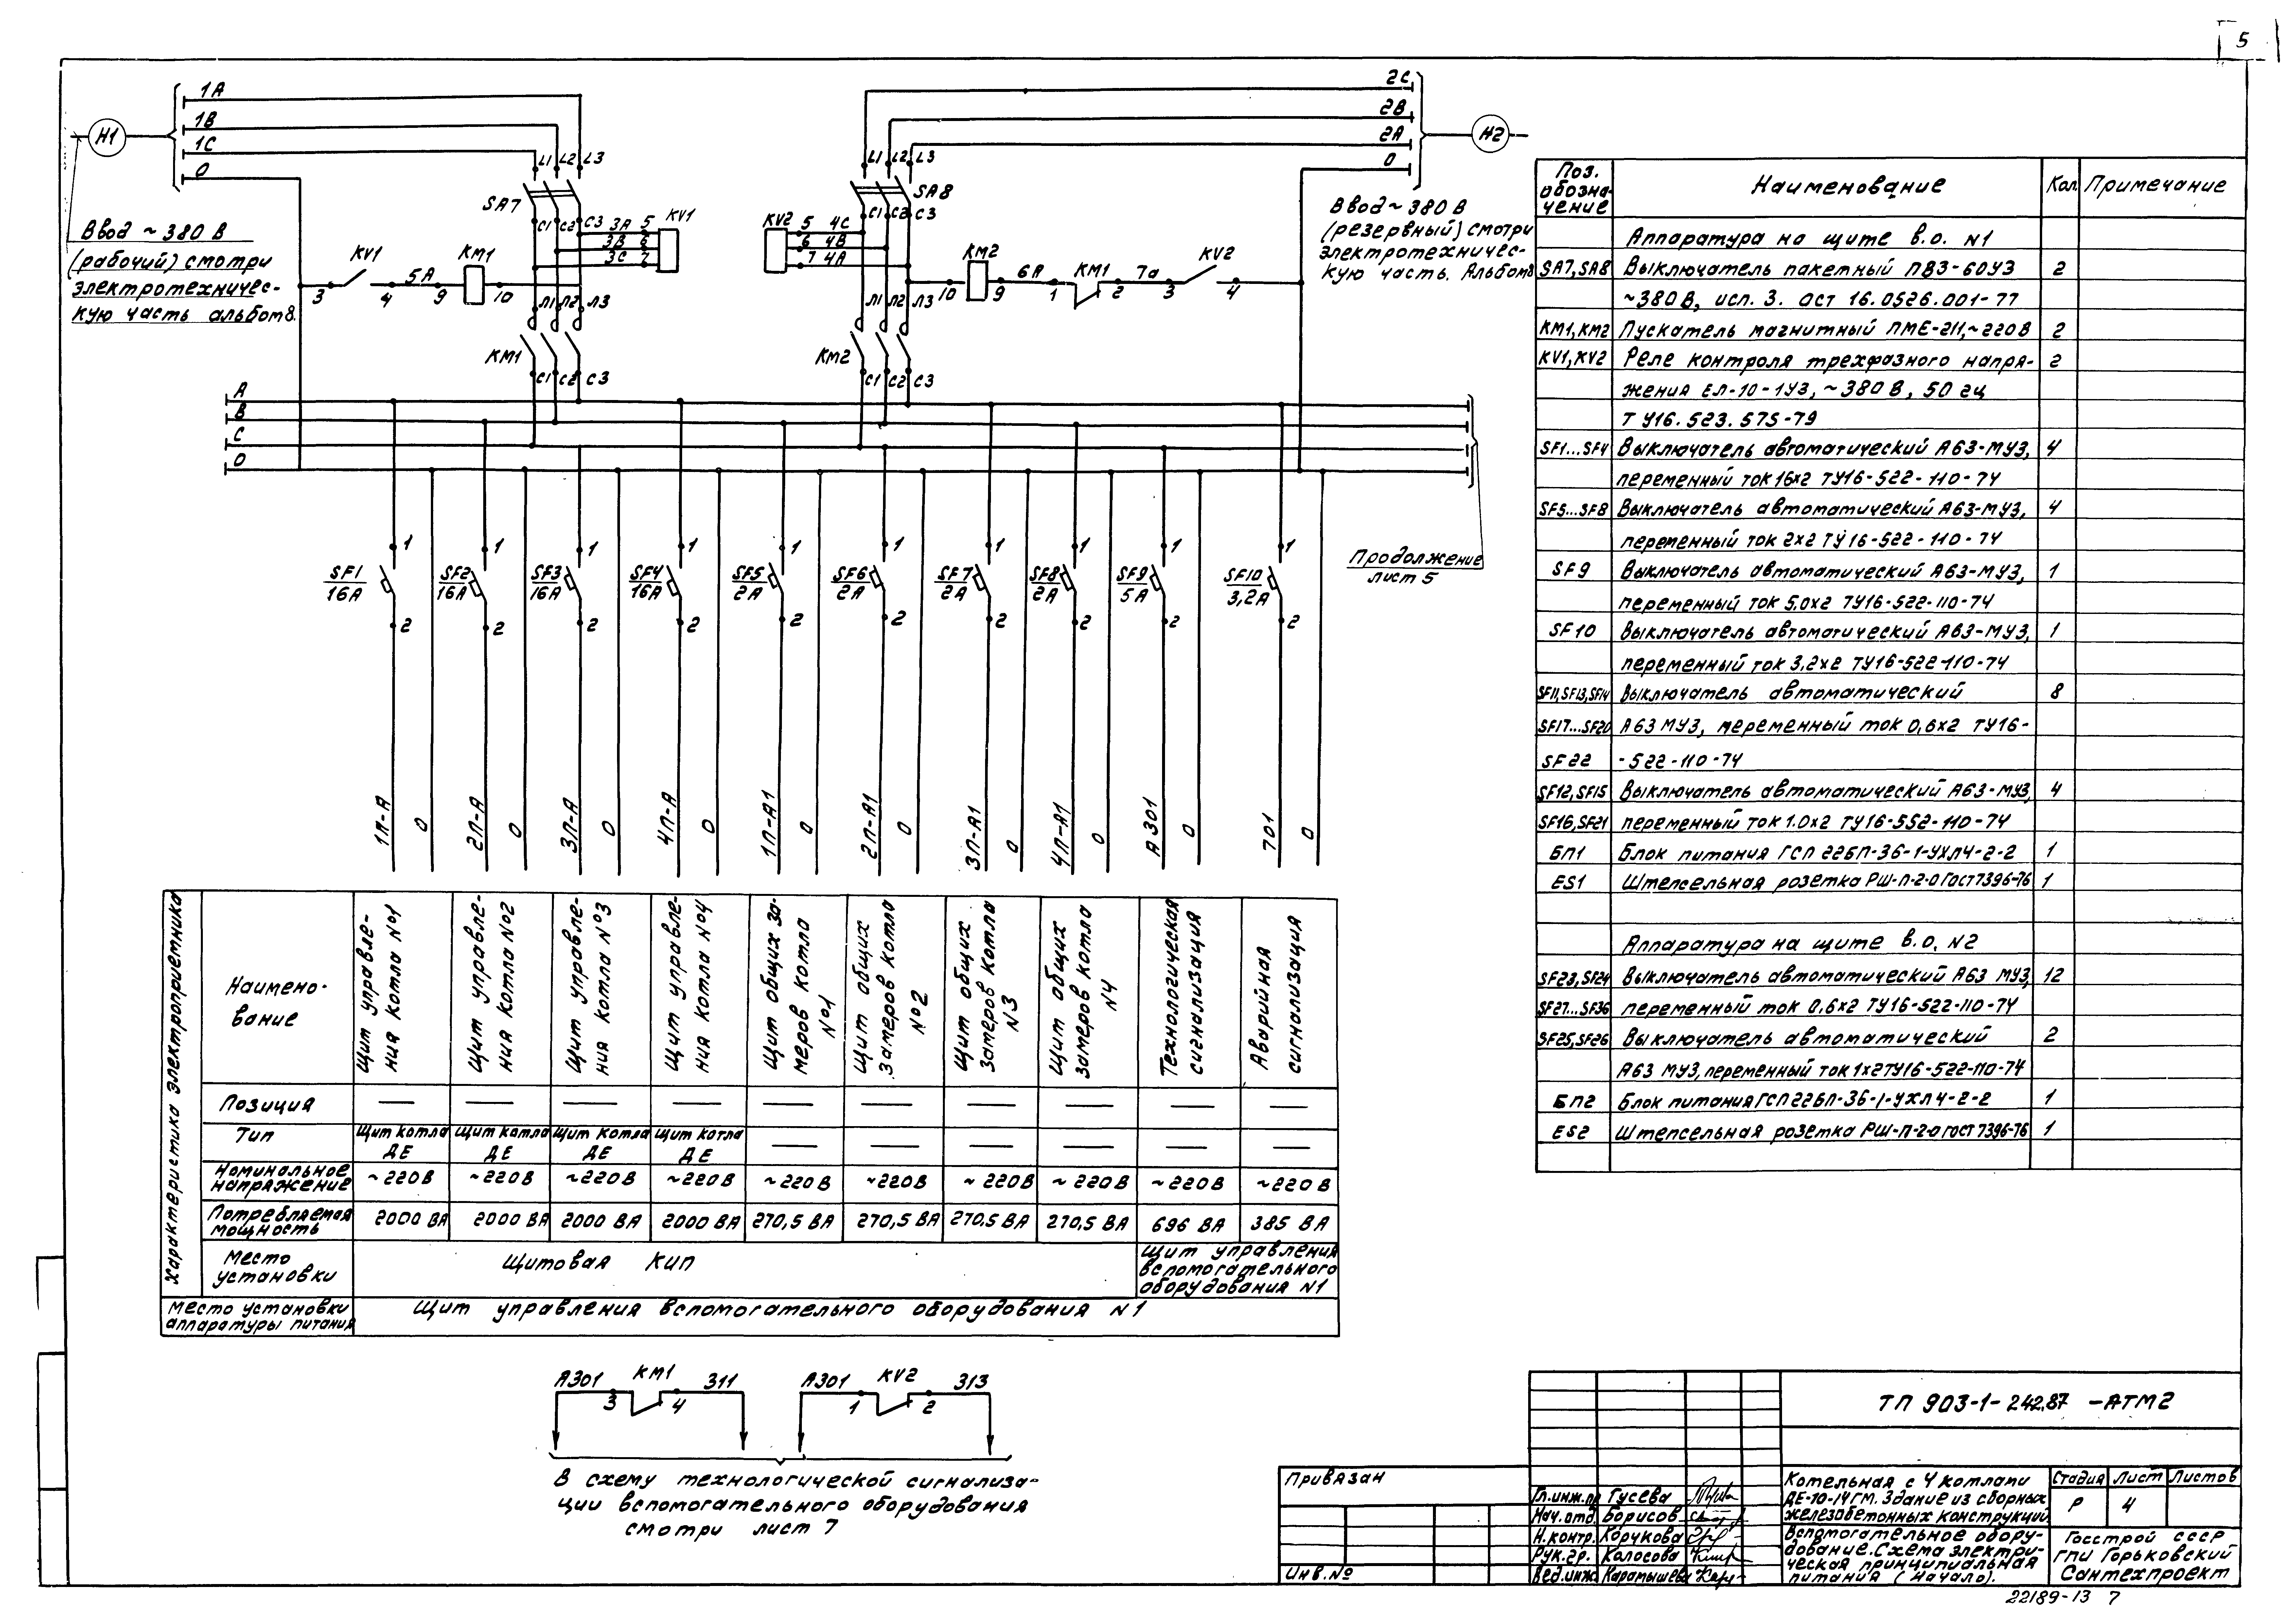 5
1А
1В
1С
0
Н1
Ввод ~ 380 В
(рабочий) смотри
электротехничес-
кую часть альбом 8.
L1 L2 L3
SA7
C1 C2 C3
3А 5
3В 6
3С 7
KV1
KV1
3 4
5А
9
KM1
10
Л1 Л2 Л3
KM1
C1 C2 C3
2С
2В
2А
0
Н2
L1 L2 L3
SA8
C1 C2 C3
KV2
5 4С
6 4В
7 4А
Ввод ~ 380 В
(резервный) смотри
электротехничес-
кую часть. Альбом 8
10
KM2
9
6А
1
KM1
2
7а
3
KV2
4
Л1 Л2 Л3
KM2
C1 C2 C3
А
В
С
0
Продолжение
лист 5
1 1 1 1 1 1 1 1 1 1
SF1 SF2 SF3 SF4 SF5 SF6 SF7 SF8 SF9 SF10
16А 16А 16А 16А 2А 2А 2А 2А 5А 3,2А
2 2 2 2 2 2 2 2 2 2
1П-А 0 2П-А 0 3П-А 0 4П-А 0 1П-А1 0 2П-А1 0 3П-А1 0 4П-А1 0 А301 0 701 0
Характеристика электроприемника
Наимено-
вание
Щит управле-
ния котла №1
Щит управле-
ния котла №2
Щит управле-
ния котла №3
Щит управле-
ния котла №4
Щит общих за-
меров котла
№1
Щит общих
замеров котла
№2
Щит общих
замеров котла
N3
Щит общих
замеров котла
N4
Технологическая
сигнализация
Аварийная
сигнализация
Позиция — — — — — — — — — —
Тип Щит котла Щит котла Щит котла Щит котла — — — — — —
ДЕ ДЕ ДЕ ДЕ
Номинальное
напряжение ~220В ~220В ~220В ~220В ~220В ~220В ~220В ~220В ~220В ~220В
Потребляемая
мощность 2000 ВА 2000 ВА 2000 ВА 2000 ВА 270,5 ВА 270,5 ВА 270,5 ВА 270,5 ВА 696 ВА 385 ВА
Место
установки
Щитовая КИП
Щит управления
вспомогательного
оборудования N1
Место установки
аппаратуры питания
Щит управления вспомогательного оборудования N1
А301 KM1 311
3 4
А301 KV2 313
1 2
В схему технологической сигнализа-
ции вспомогательного оборудования
смотри лист 7
Поз.
обозна-
чение
Наименование Кол Примечание
Аппаратура на щите в.о. N1
SA7,SA8 Выключатель пакетный ПВ3-60У3 2
~380В, исп. 3. ОСТ 16.0526.001-77
KM1,KM2 Пускатель магнитный ПМЕ-211,~220В 2
KV1,KV2 Реле контроля трехфазного напря- 2
жения ЕЛ-10-1У3, ~380В, 50 гц
ТУ16.523.575-79
SF1...SF4 Выключатель автоматический А63-МУ3, 4
переменный ток 16х2 ТУ16-522-110-74
SF5...SF8 Выключатель автоматический А63-МУ3, 4
переменный ток 2х2 ТУ16-522-110-74
SF9 Выключатель автоматический А63-МУ3, 1
переменный ток 5,0х2 ТУ16-522-110-74
SF10 Выключатель автоматический А63-МУ3, 1
переменный ток 3,2х2 ТУ16-522-110-74
SF11,SF13,SF14 Выключатель автоматический 8
SF17...SF20 А63 МУ3, переменный ток 0,6х2 ТУ16-
SF22 -522-110-74
SF12,SF15 Выключатель автоматический А63-МУ3, 4
SF16,SF21 переменный ток 1.0х2 ТУ16-552-110-74
БП1 Блок питания ГСП 22БП-36-1-УХЛЧ-2-2 1
ES1 Штепсельная розетка РШ-П-2-0 ГОСТ7396-76 1
Аппаратура на щите в.о. N2
SF23,SF24 Выключатель автоматический А63 МУ3, 12
SF27...SF36 переменный ток 0.6х2 ТУ16-522-110-74
SF25,SF26 Выключатель автоматический 2
А63 МУ3, переменный ток 1х2ТУ16-522-110-74
БП2 Блок питания ГСП22БП-36-1-УХЛ4-2-2 1
ES2 Штепсельная розетка РШ-П-2-0 ГОСТ 7396-76 1
ТП 903-1-242.87 -АТМ2
Привязан
Инв.№
Гл.инж.пр Гусева
Нач.отд. Борисов
Н.контр. Корчкова
Рук.гр. Колосова
Вед.инж. Карамышева
Котельная с 4 котлами
ДЕ-10-14гм. Здание из сборных
железобетонных конструкций
Стадия Лист Листов
Р 4
Вспомогательное обору-
дование. Схема электри-
ческая принципиальная
питания (начало).
Госстрой СССР
ГПИ Горьковский
Сантехпроект
22189-13 7